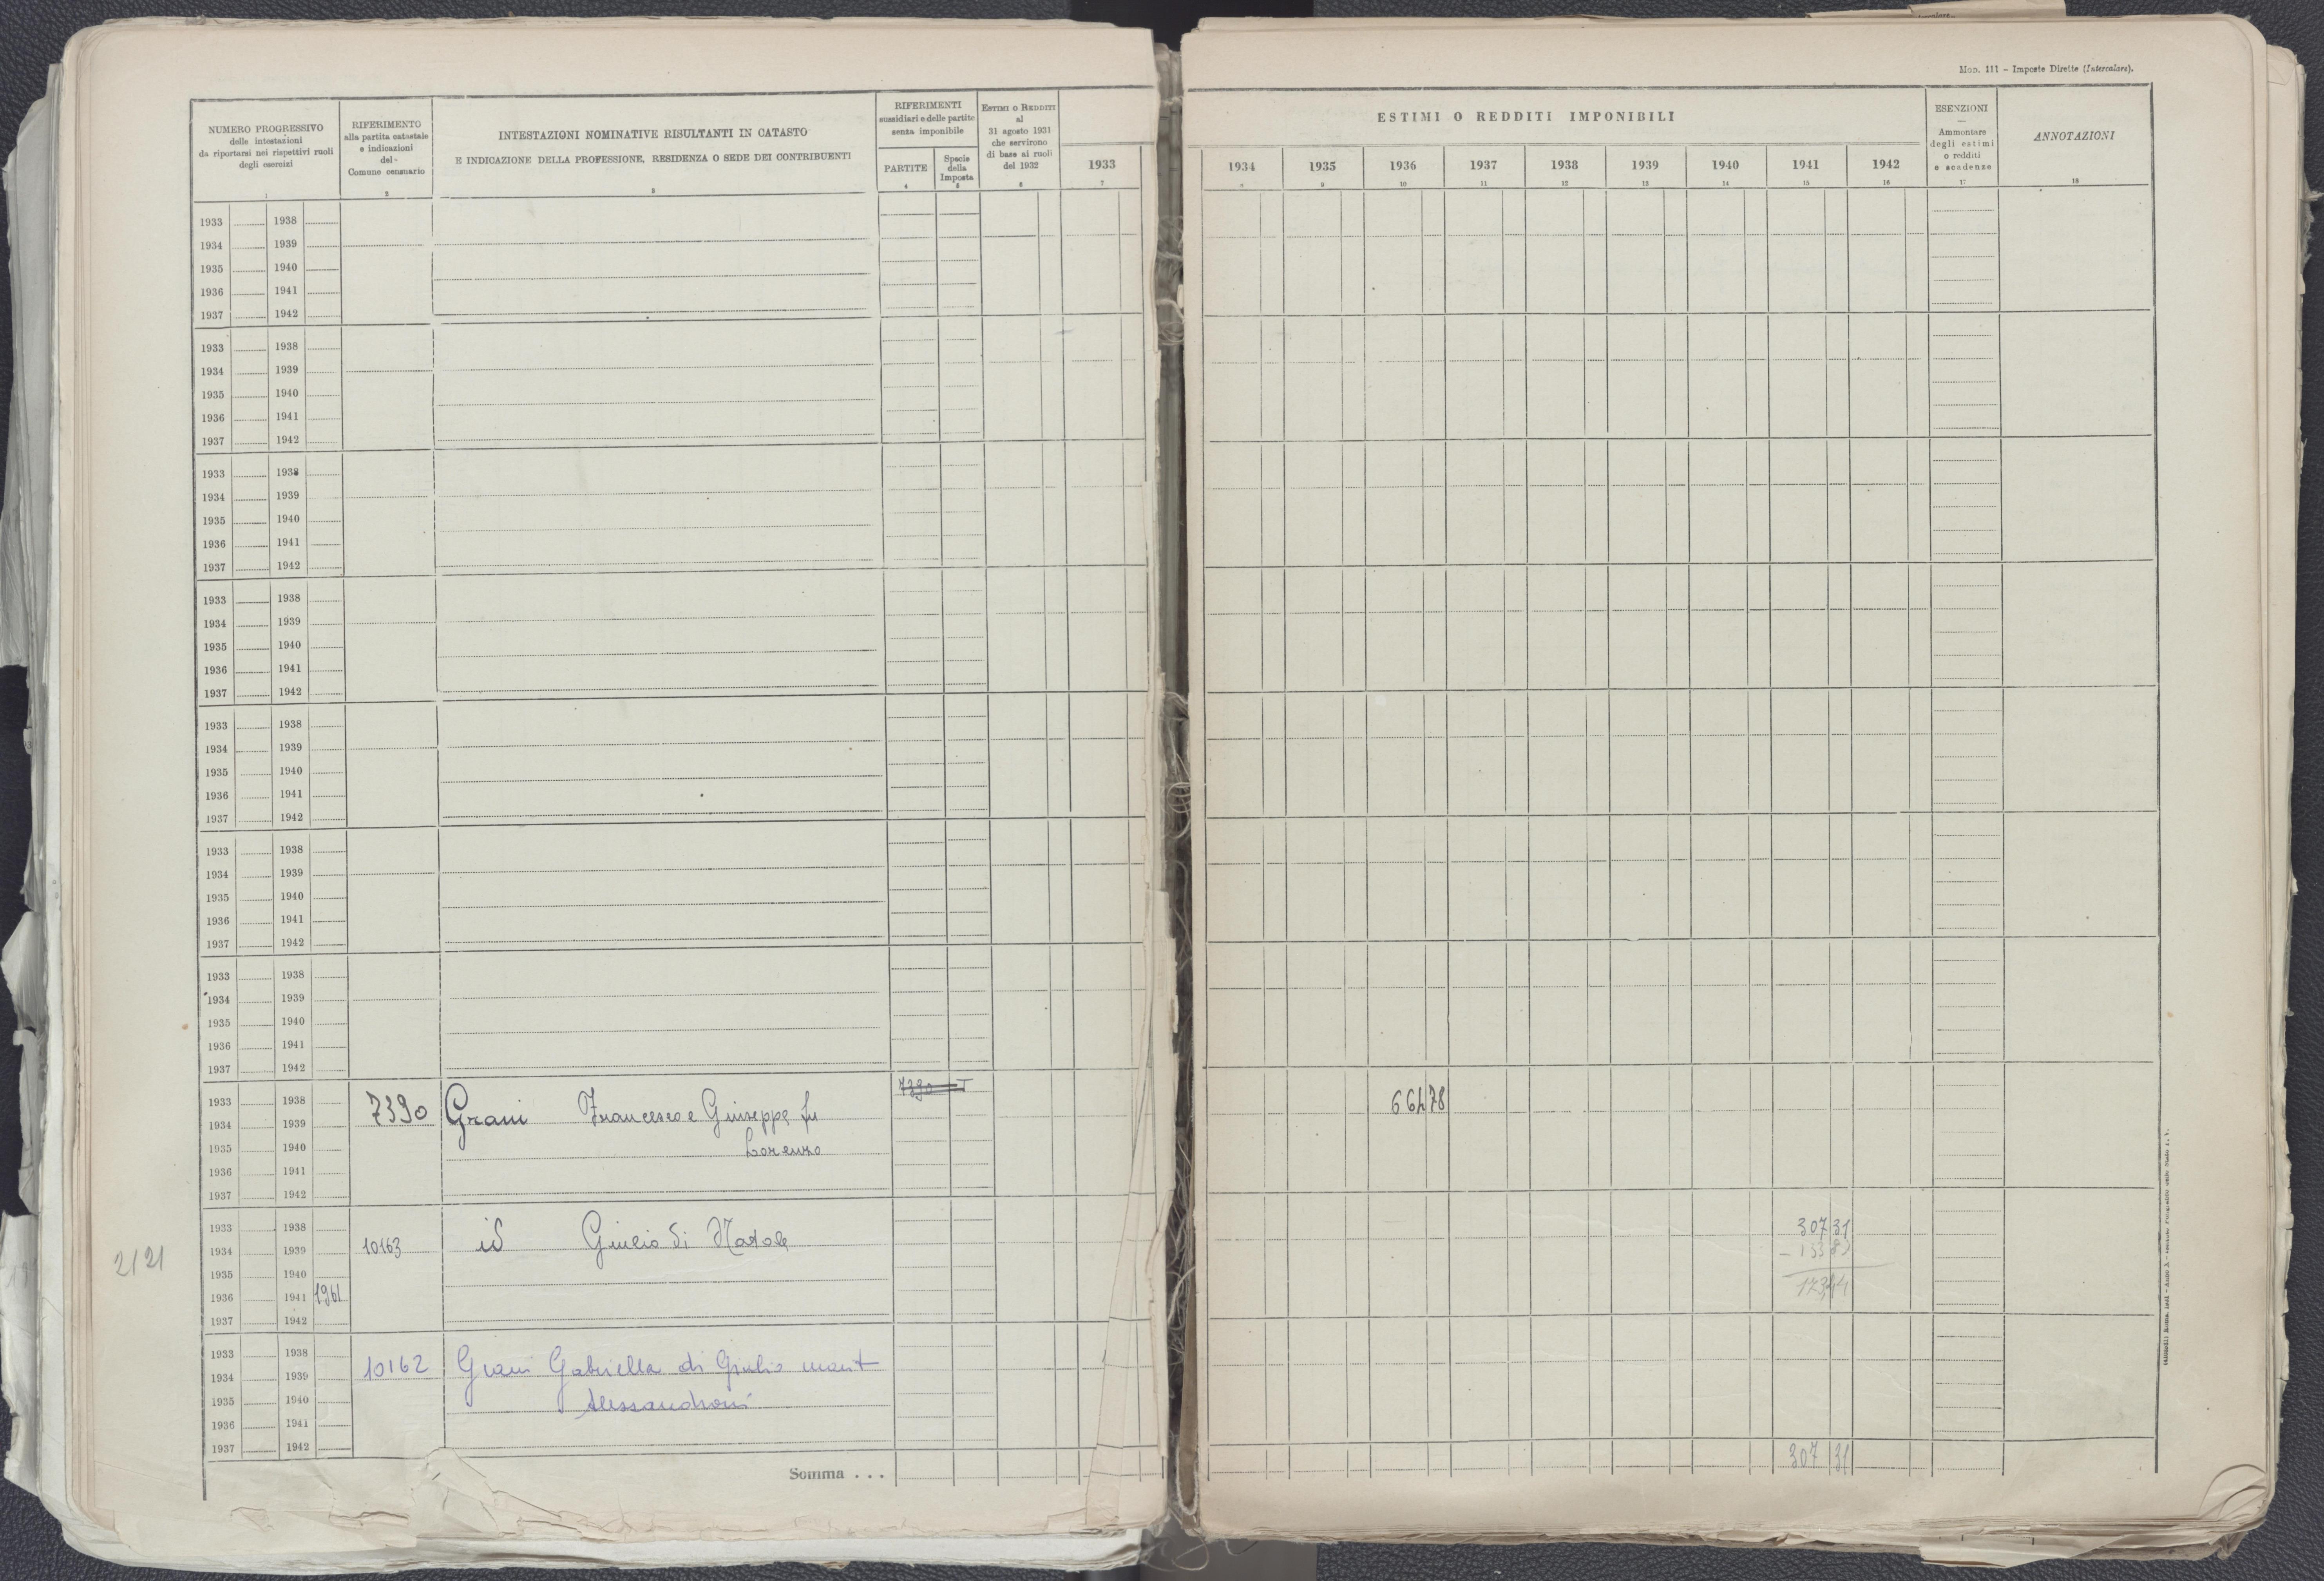 Mod. 111 - Imposte Dirette (Intercalare).
NUMERO PROGRESSIVO
delle intestazioni
da riportarsi nei rispettivi ruoli
degli esercizi
1
RIFERIMENTO
alla partita catastale
e indicazioni
del
Comune censuario
2
INTESTAZIONI NOMINATIVE RISULTANTI IN CATASTO
E INDICAZIONE DELLA PROFESSIONE, RESIDENZA O SEDE DEI CONTRIBUENTI
3
RIFERIMENTI
sussidiari e delle partite
senza imponibile
PARTITE
4
Specie
della
Imposta
5
ESTIMI O REDDITI
al
31 agosto 1931
che servirono
di base ai ruoli
del 1932
6
1933
7
ESTIMI O REDDITI IMPONIBILI
1934 1935 1936 1937 1938 1939 1940 1941 1942
8 9 10 11 12 13 14 15 16
ESENZIONI
Ammontare
degli estimi
o redditi
e scadenze
17
ANNOTAZIONI
18
1933 1938
1934 1939
1935 1940
1936 1941
1937 1942
1933 1938
1934 1939
1935 1940
1936 1941
1937 1942
1933 1938
1934 1939
1935 1940
1936 1941
1937 1942
1933 1938
1934 1939
1935 1940
1936 1941
1937 1942
1933 1938
1934 1939
1935 1940
1936 1941
1937 1942
1933 1938
1934 1939
1935 1940
1936 1941
1937 1942
1933 1938
1934 1939
1935 1940
1936 1941
1937 1942
1933 1938
1934 1939
1935 1940
1936 1941
1937 1942
7390 Grani Francesco e Giuseppe fu
Lorenzo
7390 I
664 78
1933 1938
1934 1939
1935 1940
1936 1941 1961
1937 1942
2121
10163 id Giulio di Natale
307 31
- 133 87
173 44
1933 1938
1934 1939
1935 1940
1936 1941
1937 1942
10162 Grani Gabriella di Giulio marit
Alessandroni
Somma . . .
307 31